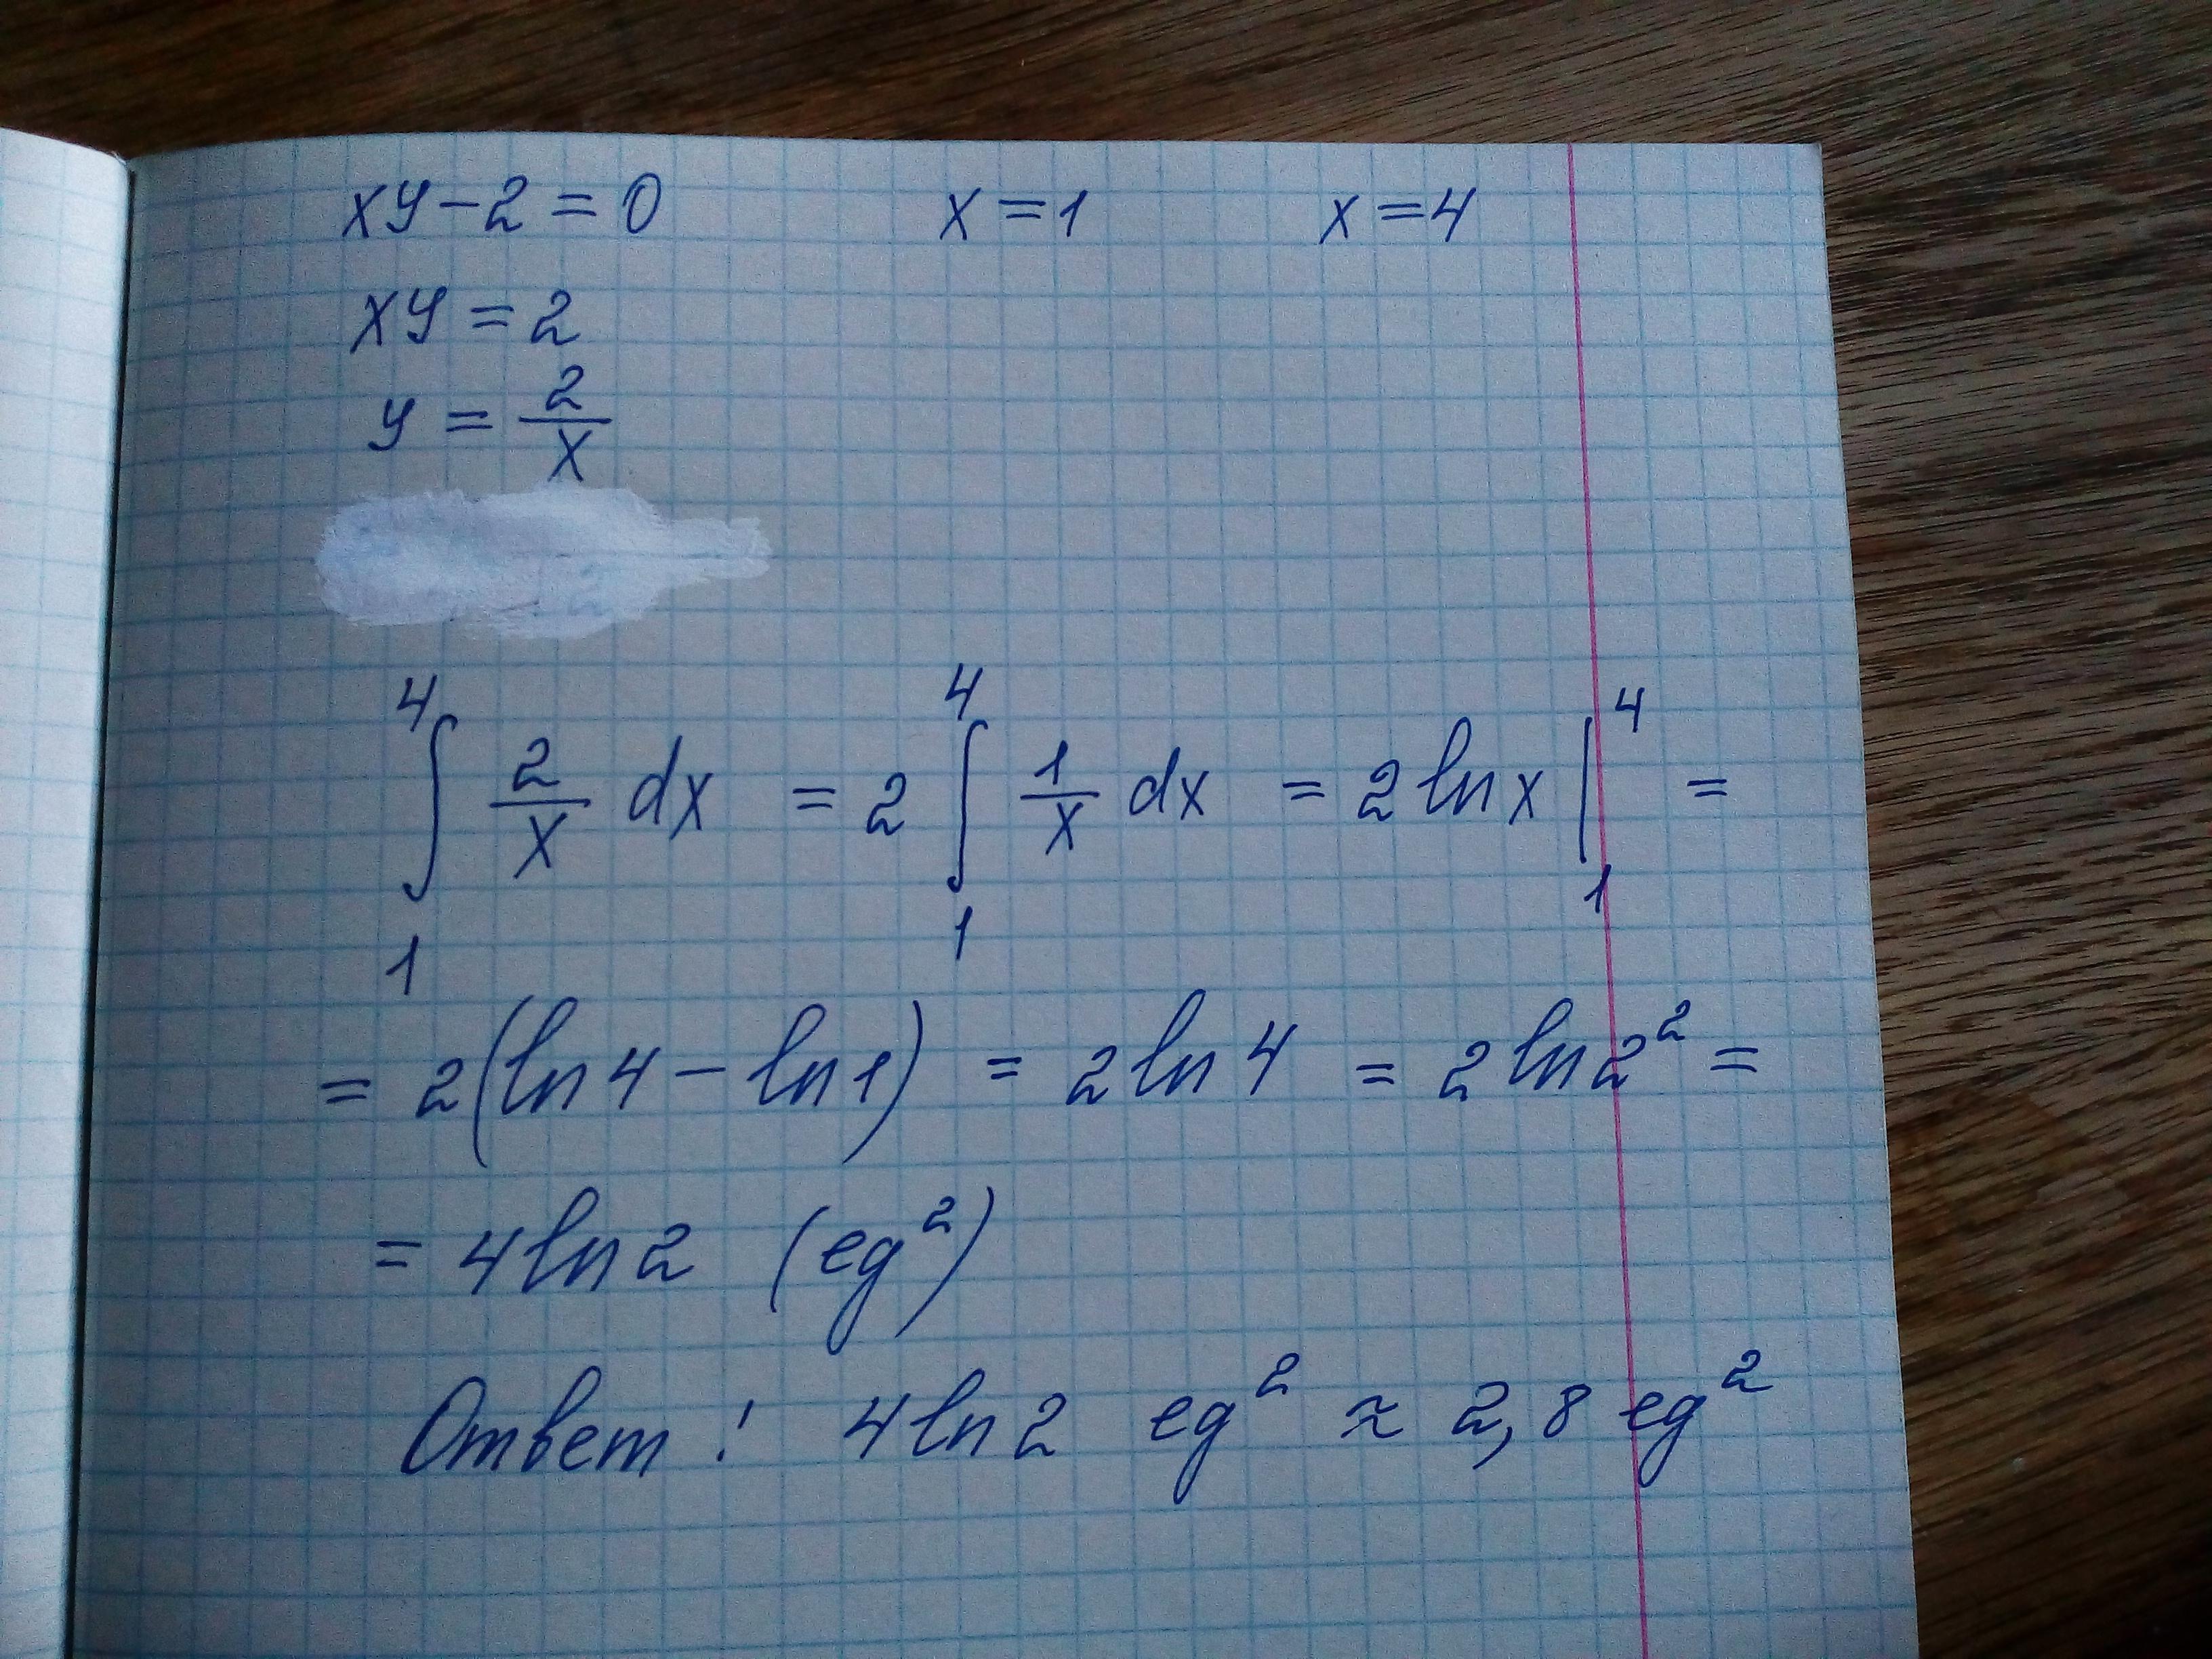 xy - 2 = 0 x = 1 x = 4
xy = 2
y = 2/x
∫₁⁴ 2/x dx = 2 ∫₁⁴ 1/x dx = 2 ln x |₁⁴ =
= 2(ln 4 - ln 1) = 2 ln 4 = 2 ln 2² =
= 4 ln 2 (ед²)
Ответ: 4 ln 2 ед² ≈ 2,8 ед²